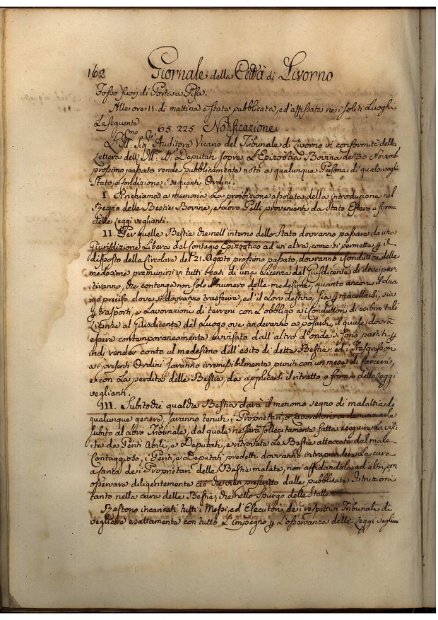 162 Giornale della Città di Livorno
Fosso fuori di Porta a Pisa.
Alle ore 11. di mattina è stata pubblicata, ed affissata nei soliti Luoghi
La seguente
65. 225. Notificazione
Sig. Auditore Vicario del Tribunale di Livorno in conformità della
Lettera dell' Deputaz. sopra L'Epizootia Bovina de' 30 Novemb.
prossimo passato rende pubblicamente noto a qualunque Persona di qualsivogli
Stato, e condizione i seguenti Ordini.
I. Richiamo a memoria La proibizione assoluta della introduzione nel
di Bestie Bovine, e Loro Pelli provenienti da Stato Estero a forma
delle Leggi veglianti.
II. Per quelle Bestie che nell' interno dello Stato dovranno passare da una
Giurisdizione Libera dal Contagio Epizootico ad un altra, come si permette
disposto della Circolare del 21. Agosto prossimo passato, dovranno i Conduttori delle
medesime premunirsi in tutti i casi di una Licenza del Giusdicente di dove par-
tiranno, che contenga non solo il numero delle medesime, quanto ancora
preciso dove si dovranno trasferire, ed il Loro destino, sia
o trasporti, o Lavorazioni di terreni con L'obbligo ai Conduttori di esibire tale
Licenza al Giusdicente del Luogo ove anderanno a posarsi, il quale dovrà
essere contemporaneamente avvisato dall' altro d'onde sono partiti,
indi render conto al medesimo dell' esito della Bestia: ed i Trasgressori
ai presenti Ordini saranno irremissibilmente puniti con un mese di Carcere,
e con La perdita della Bestia da applicarsi il ritratto a forma delle Leggi
veglianti.
III. Subito che qualche Bestia darà il menomo segno di malattia di
qualunque genere, saranno tenuti i Proprietari, o Lavoratori a denunciarla
subito al Loro Tribunale, dal quale ne sarà sollecitamente fatta eseguire La visi-
ta da Periti Abili, e Deputati, e ritrovata La Bestia attaccata dal male
Contagioso, i Periti, e Deputati predetti dovranno intraprendere La cura
a spese dei Proprietari delle Bestie malate, non affidandola ad altri, con
osservare diligentemente ciò che vien prescritto dalle pubblicate Istruzioni
tanto nella cura delle Bestie, che nello Spurgo delle Stalle.
Restano incaricati tutti i Messi, ed Esecutori dei rispettivi Tribunali di
vegliare esattamente con tutto L'impegno p. L'osservanza delle Leggi veglian